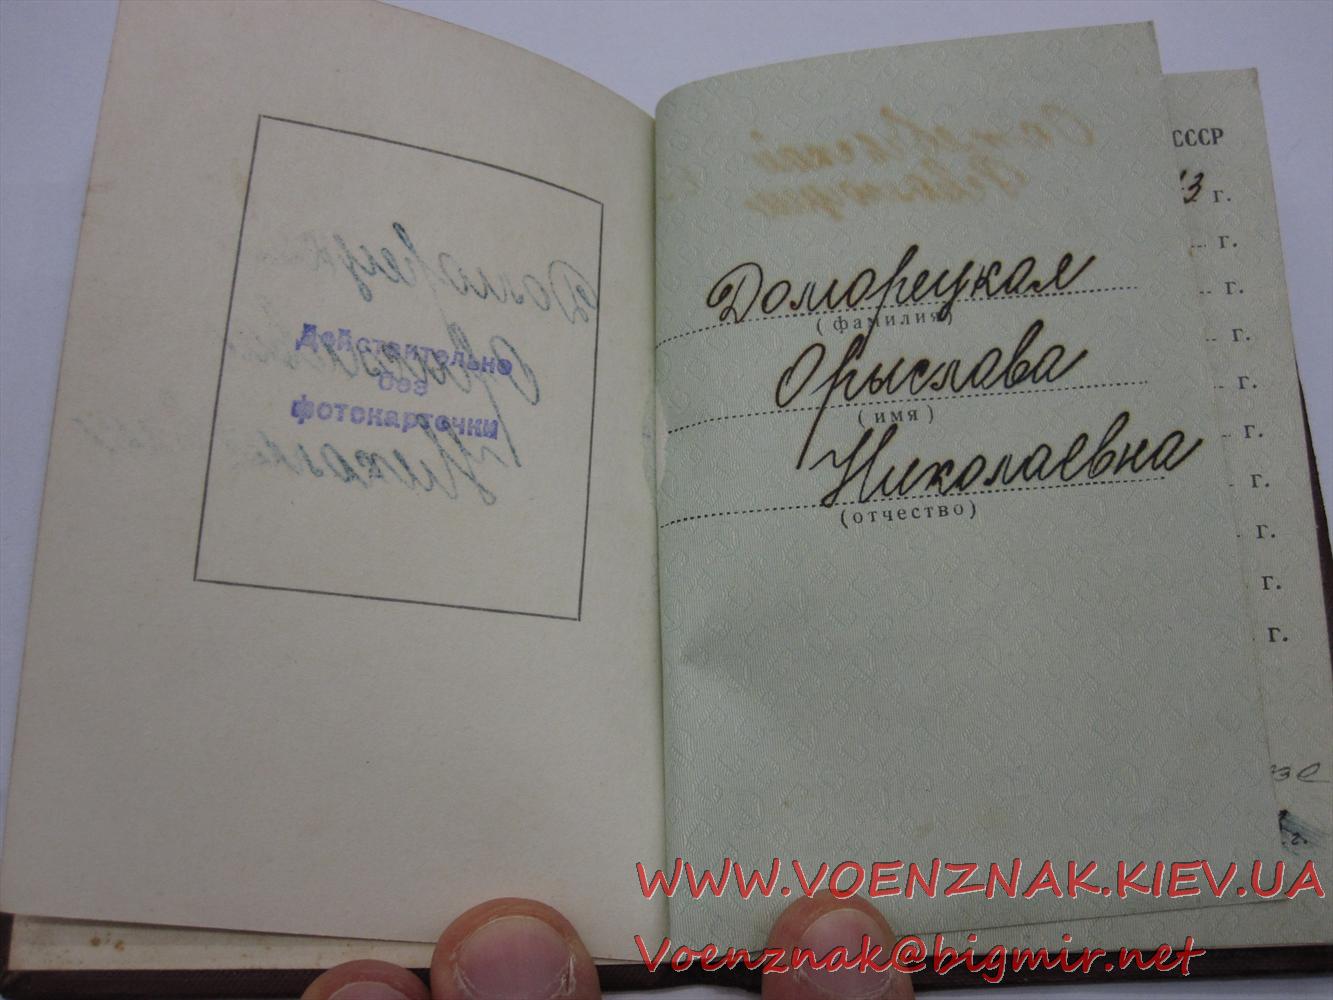 Действительно
без
фотокарточки
Октябрьской
Революции
Доморецкая
(фамилия)
Орыслава
(имя)
Николаевна
(отчество)
СССР
13 г.
г.
г.
г.
г.
г.
г.
г.
г.
г.
г.
WWW.VOENZNAK.KIEV.UA
Voenznak@bigmir.net